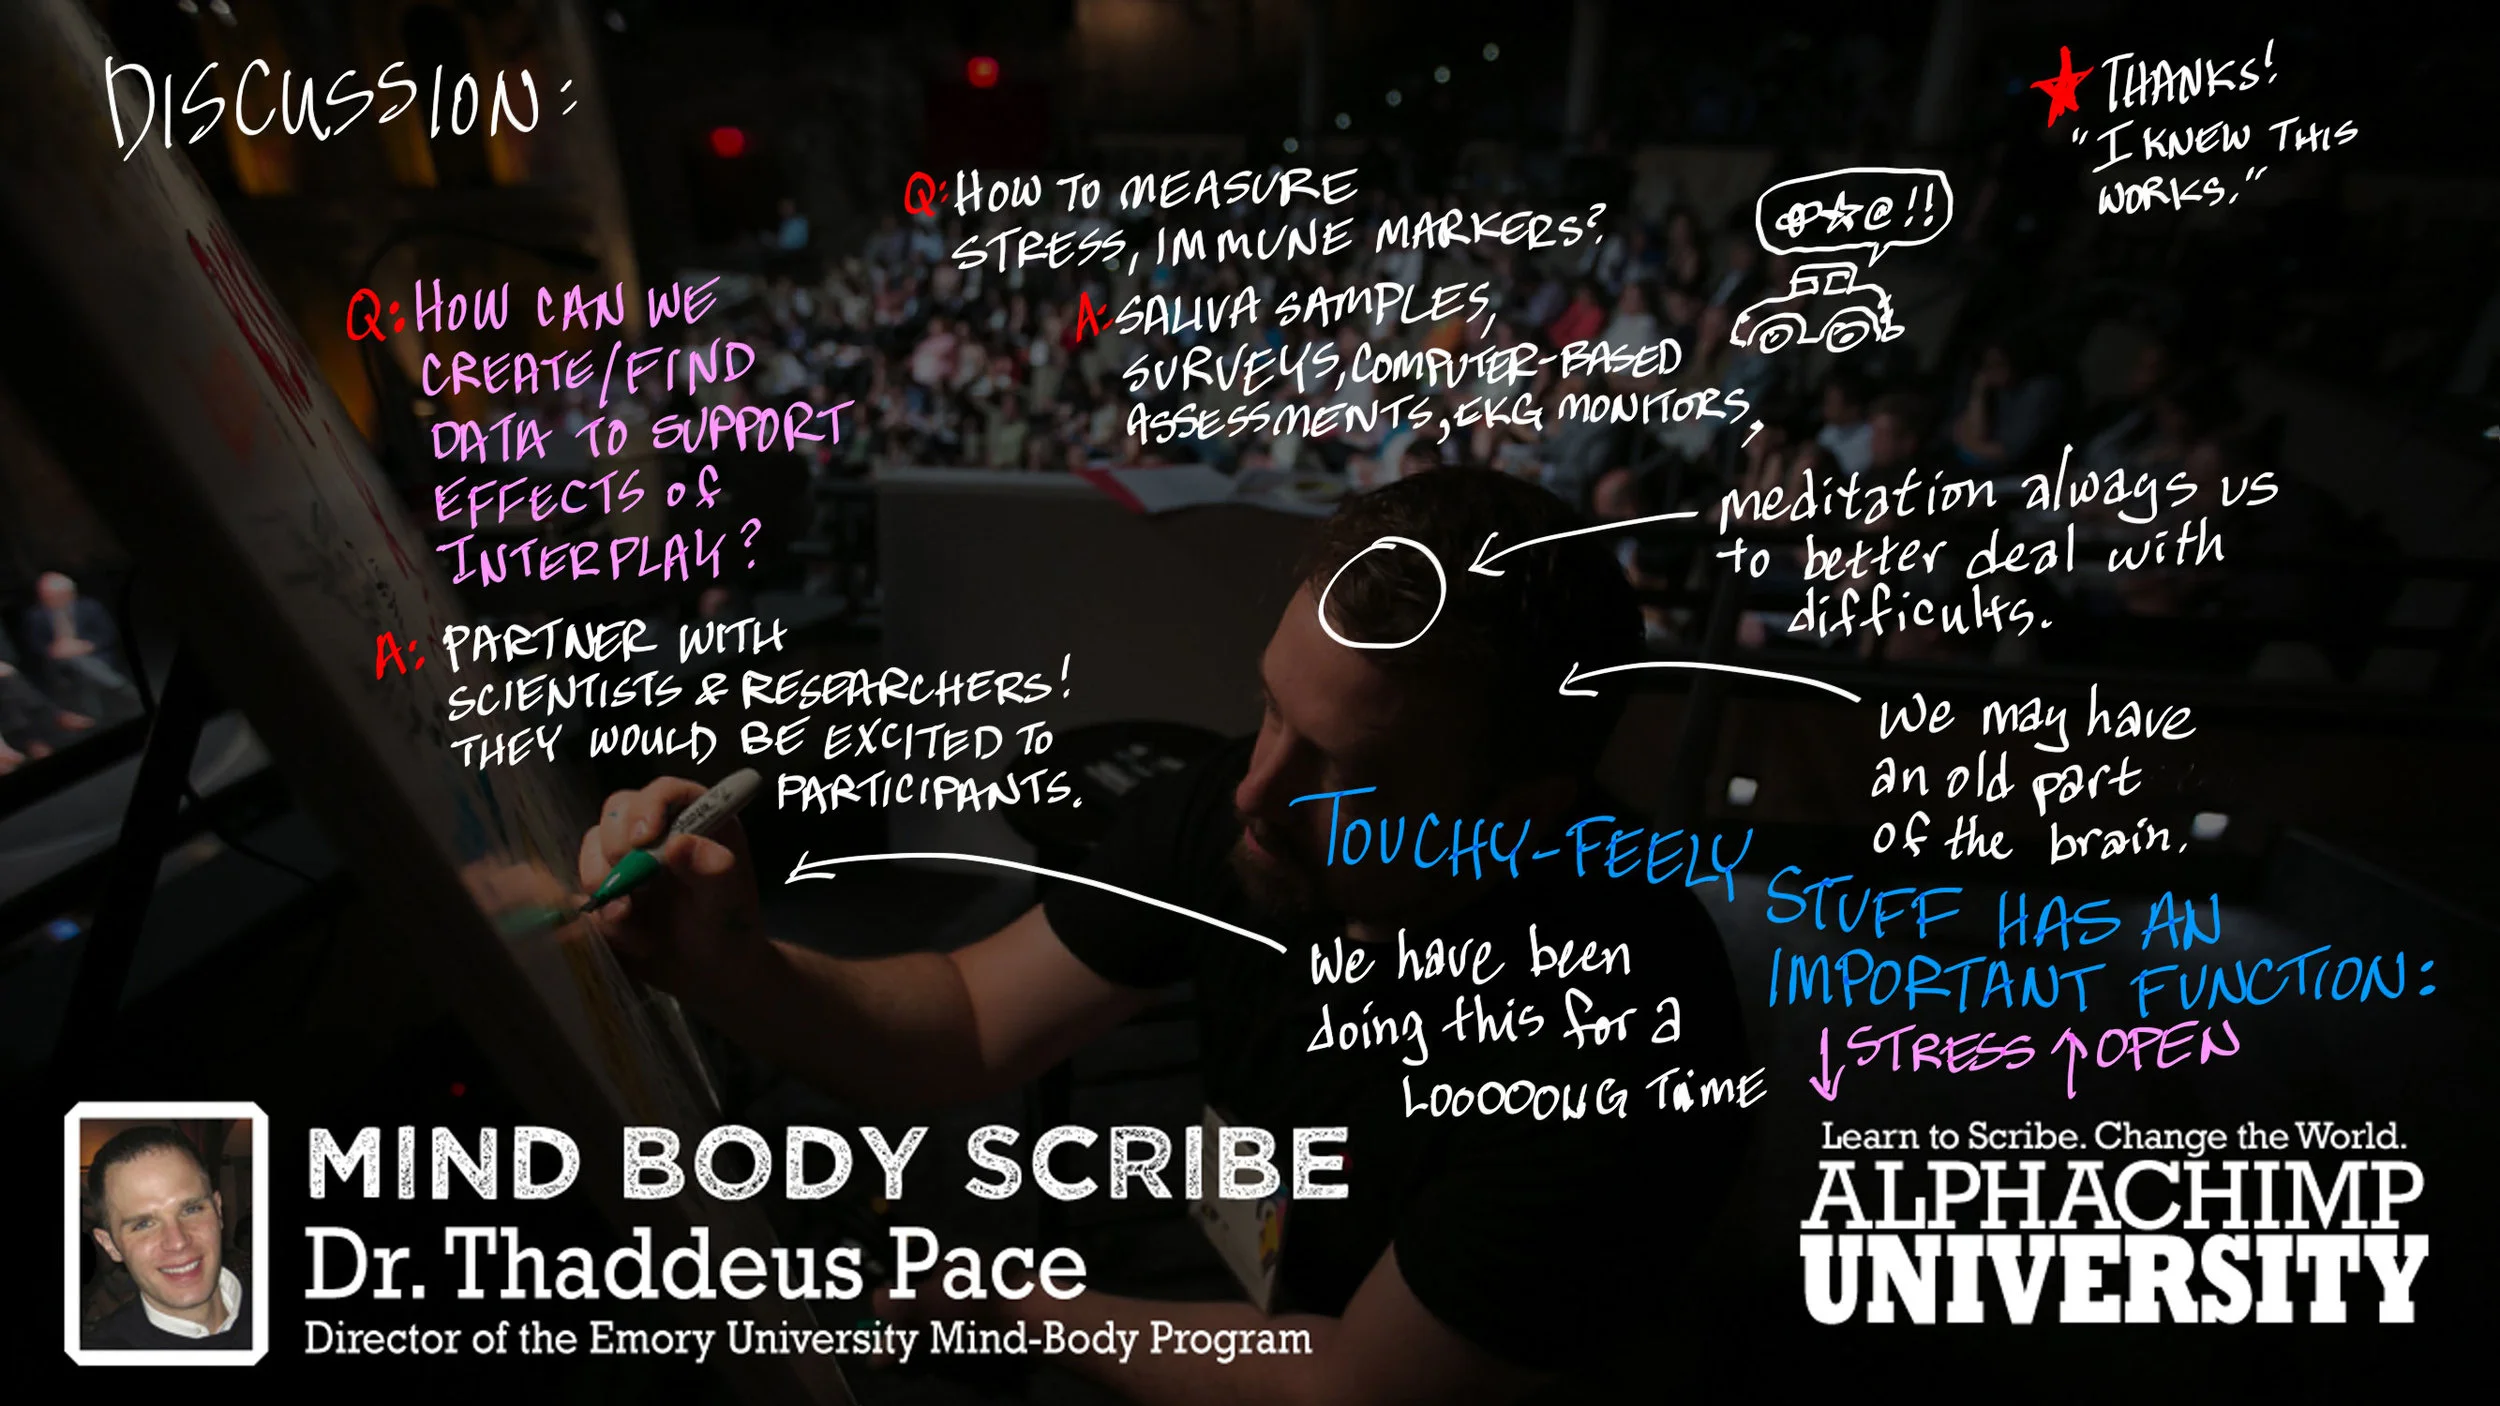 DISCUSSION:
★ THANKS!
"I KNEW THIS
WORKS."
Q: HOW TO MEASURE
STRESS, IMMUNE MARKERS?
A: SALIVA SAMPLES,
SURVEYS, COMPUTER-BASED
ASSESSMENTS, EKG MONITORS,
@★@!!
Q: HOW CAN WE
CREATE/FIND
DATA TO SUPPORT
EFFECTS OF
INTERPLAY?
A: PARTNER WITH
SCIENTISTS & RESEARCHERS!
THEY WOULD BE EXCITED TO
PARTICIPANTS.
meditation always us
to better deal with
difficults.
We may have
an old part
of the brain.
TOUCHY-FEELY
STUFF HAS AN
IMPORTANT FUNCTION:
↓STRESS ↑OPEN
We have been
doing this for a
LOOOOONG TIME
MIND BODY SCRIBE
Dr. Thaddeus Pace
Director of the Emory University Mind-Body Program
Learn to Scribe. Change the World.
ALPHACHIMP
UNIVERSITY